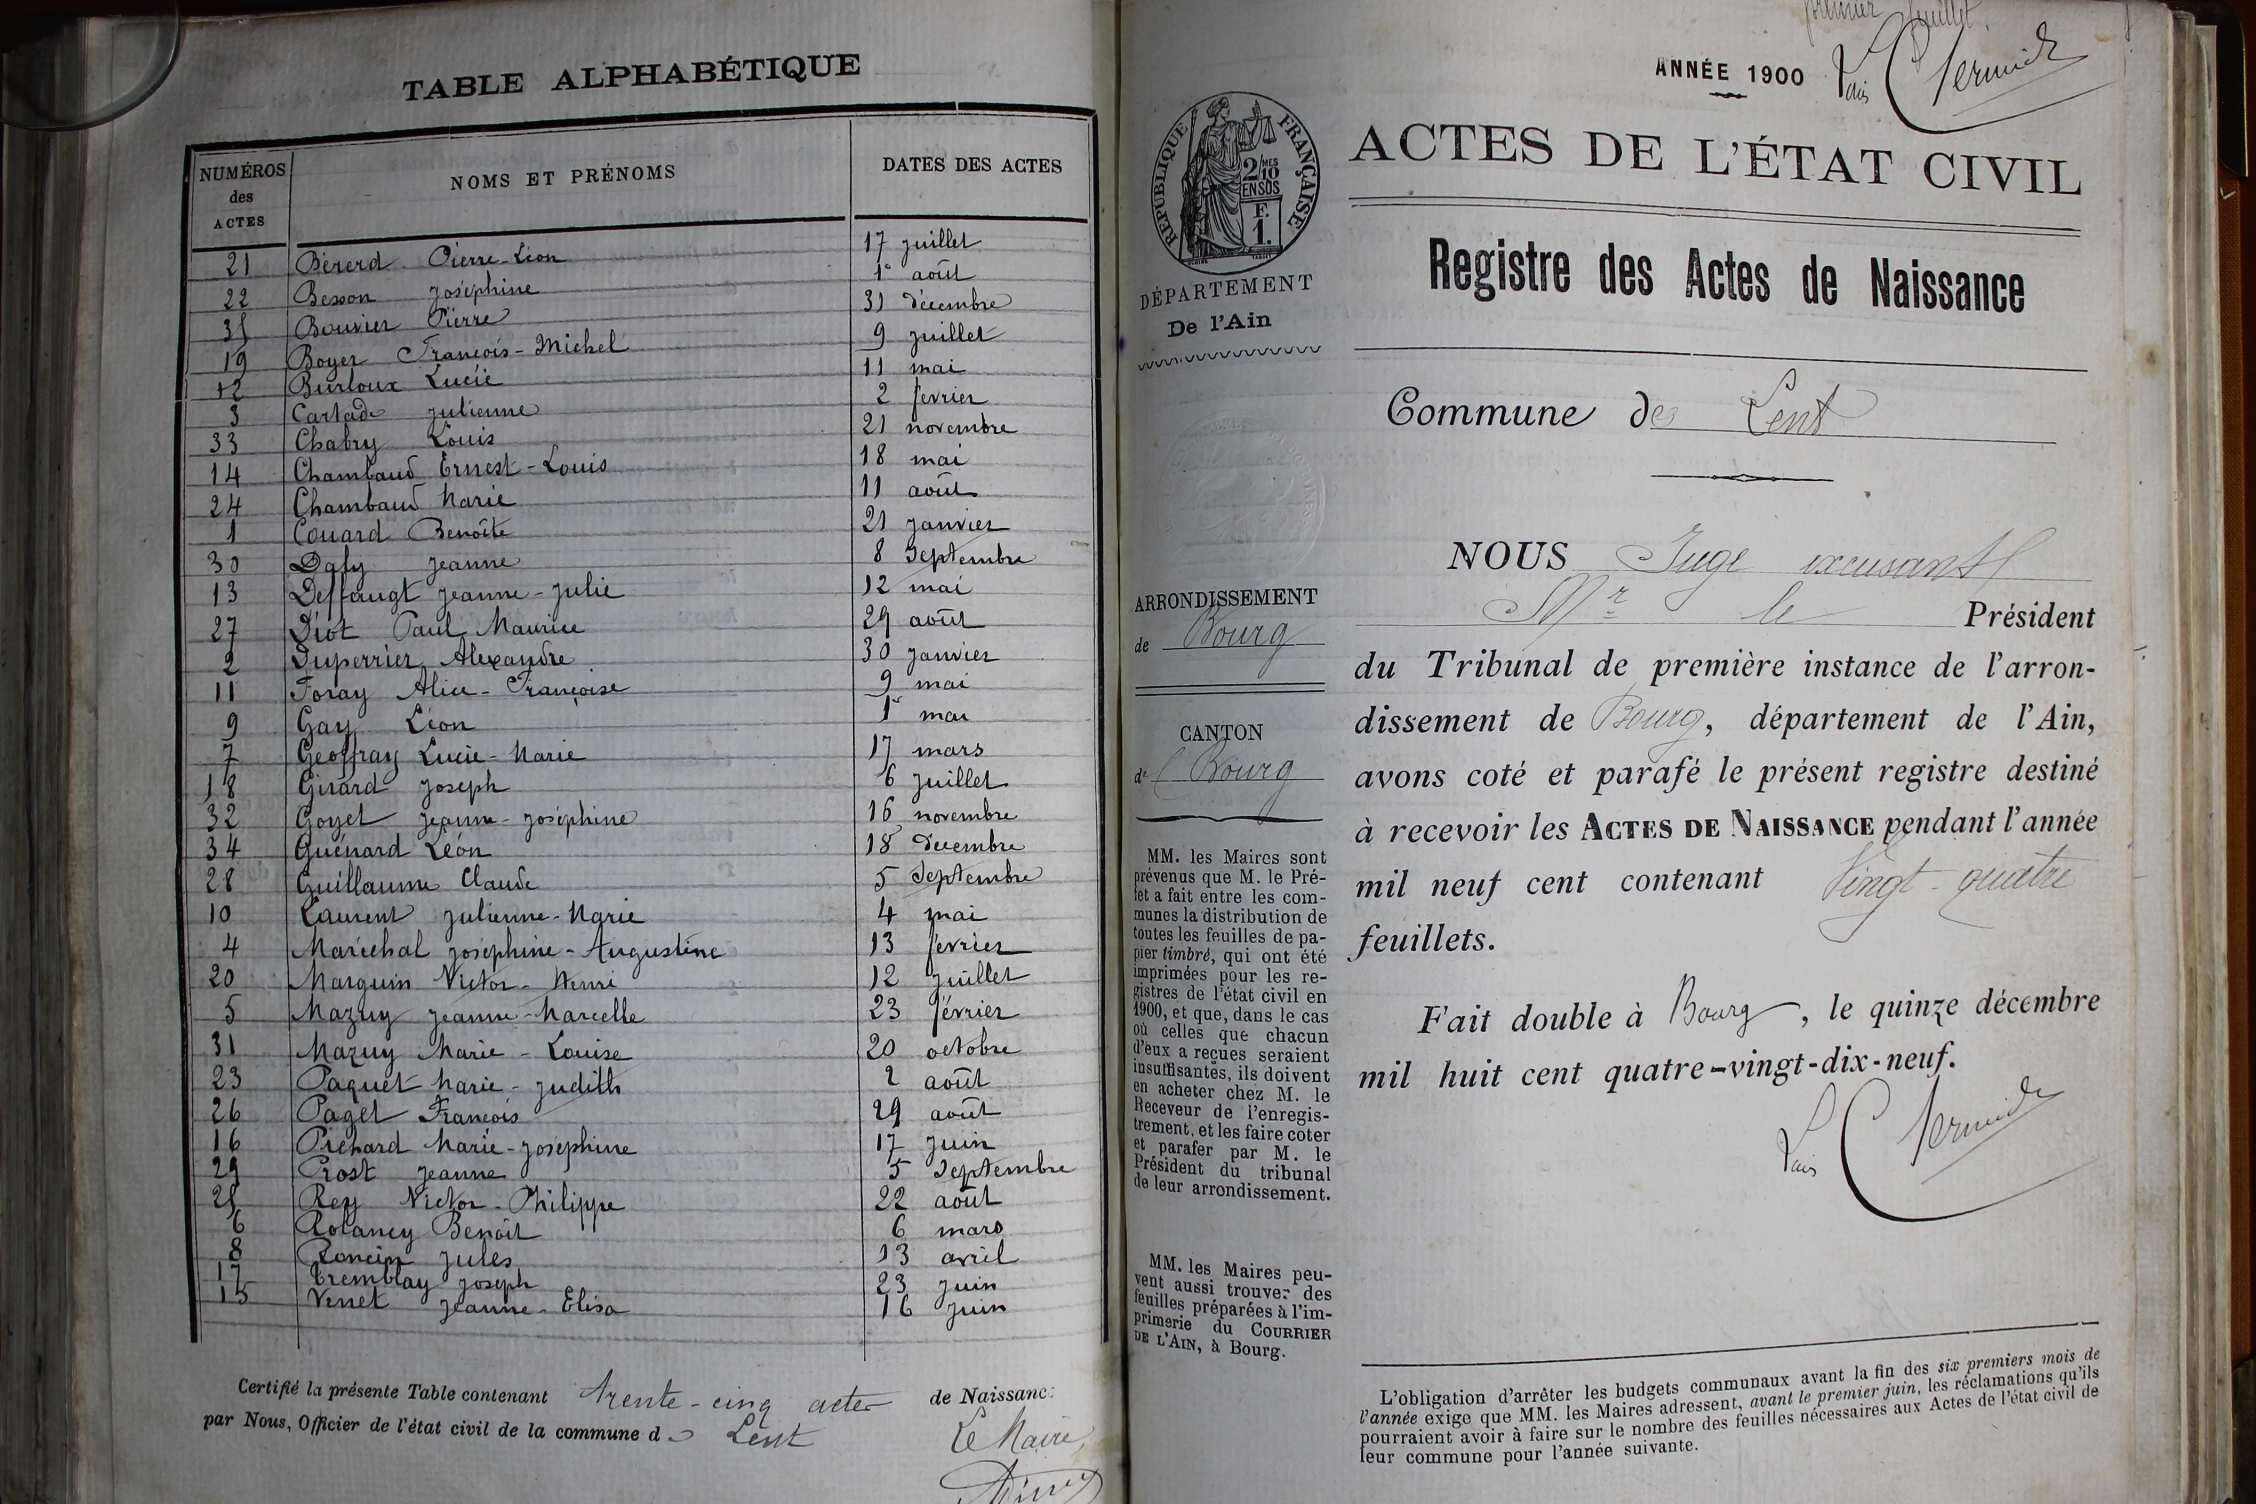 TABLE ALPHABÉTIQUE
NUMÉROS des ACTES
NOMS ET PRÉNOMS
DATES DES ACTES
21 Bérerd Pierre-Léon 17 juillet
22 Besson Joséphine 1er août
35 Bouvier Pierre 31 décembre
19 Boyer François-Michel 9 juillet
12 Burloux Lucie 11 mai
3 Cartade Julienne 2 février
33 Chabry Louis 21 novembre
14 Chambaud Ernest-Louis 18 mai
24 Chambaud Marie 11 août
1 Couard Benoîte 21 janvier
30 Daly Jeanne 8 Septembre
13 Deffaugt Jeanne-Julie 12 mai
27 Diot Paul Maurice 29 août
2 Duperrier Alexandre 30 janvier
11 Foray Alice-Françoise 9 mai
9 Gay Léon 1er mai
7 Geoffray Lucie-Marie 17 mars
18 Girard Joseph 6 juillet
32 Goyet Jeanne-Joséphine 16 novembre
34 Guénard Léon 18 décembre
28 Guillaume Claude 5 Septembre
10 Laurent Julienne-Marie 4 mai
4 Maréchal Joséphine-Augustine 13 février
20 Marguin Victor-Henri 12 juillet
5 Mazuy Jeanne-Marcelle 23 février
31 Mazuy Marie-Louise 20 octobre
23 Paquet Marie-Judith 2 août
26 Paget François 29 août
16 Pichard Marie-Joséphine 17 juin
29 Prost Jeanne 5 Septembre
25 Rey Victor-Philippe 22 août
6 Rolancy Benoît 6 mars
8 Roncin Jules 13 avril
17 Tremblay Joseph 23 juin
15 Venet Jeanne-Elisa 16 juin
Certifié la présente Table contenant trente-cinq actes de Naissance
par Nous, Officier de l'état civil de la commune de Lent
Le Maire,
premier feuillet.
ANNÉE 1900
RÉPUBLIQUE FRANÇAISE
2/10 EN SUS
F. 1.
DÉPARTEMENT
De l'Ain
ARRONDISSEMENT
de Bourg
CANTON
de Bourg
MM. les Maires sont
prévenus que M. le Pré-
fet a fait entre les com-
munes la distribution de
toutes les feuilles de pa-
pier timbré, qui ont été
imprimées pour les re-
gistres de l'état civil en
1900, et que, dans le cas
où celles que chacun
d'eux a reçues seraient
insuffisantes, ils doivent
en acheter chez M. le
Receveur de l'enregis-
trement, et les faire coter
et parafer par M. le
Président du tribunal
de leur arrondissement.
MM. les Maires peu-
vent aussi trouver des
feuilles préparées à l'im-
primerie du COURRIER
DE L'AIN, à Bourg.
ACTES DE L'ÉTAT CIVIL
Registre des Actes de Naissance
Commune de Lent
NOUS Juge excusant
Mr le Président
du Tribunal de première instance de l'arron-
dissement de Bourg, département de l'Ain,
avons coté et parafé le présent registre destiné
à recevoir les ACTES DE NAISSANCE pendant l'année
mil neuf cent contenant Vingt-quatre
feuillets.
Fait double à Bourg, le quinze décembre
mil huit cent quatre-vingt-dix-neuf.
L'obligation d'arrêter les budgets communaux avant la fin des six premiers mois de
l'année exige que MM. les Maires adressent, avant le premier juin, les réclamations qu'ils
pourraient avoir à faire sur le nombre des feuilles nécessaires aux Actes de l'état civil de
leur commune pour l'année suivante.